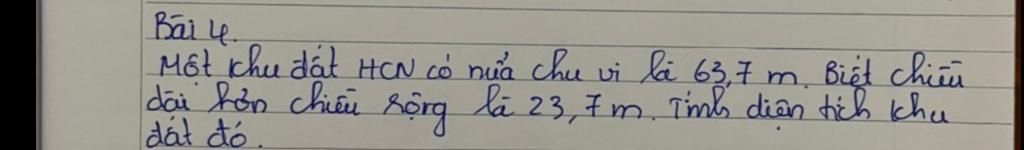 Bài 4.
Một khu đất HCN có nửa chu vi là 63,7 m. Biết chiều
dài hơn chiều rộng là 23,7m. Tính diện tích khu
đất đó.